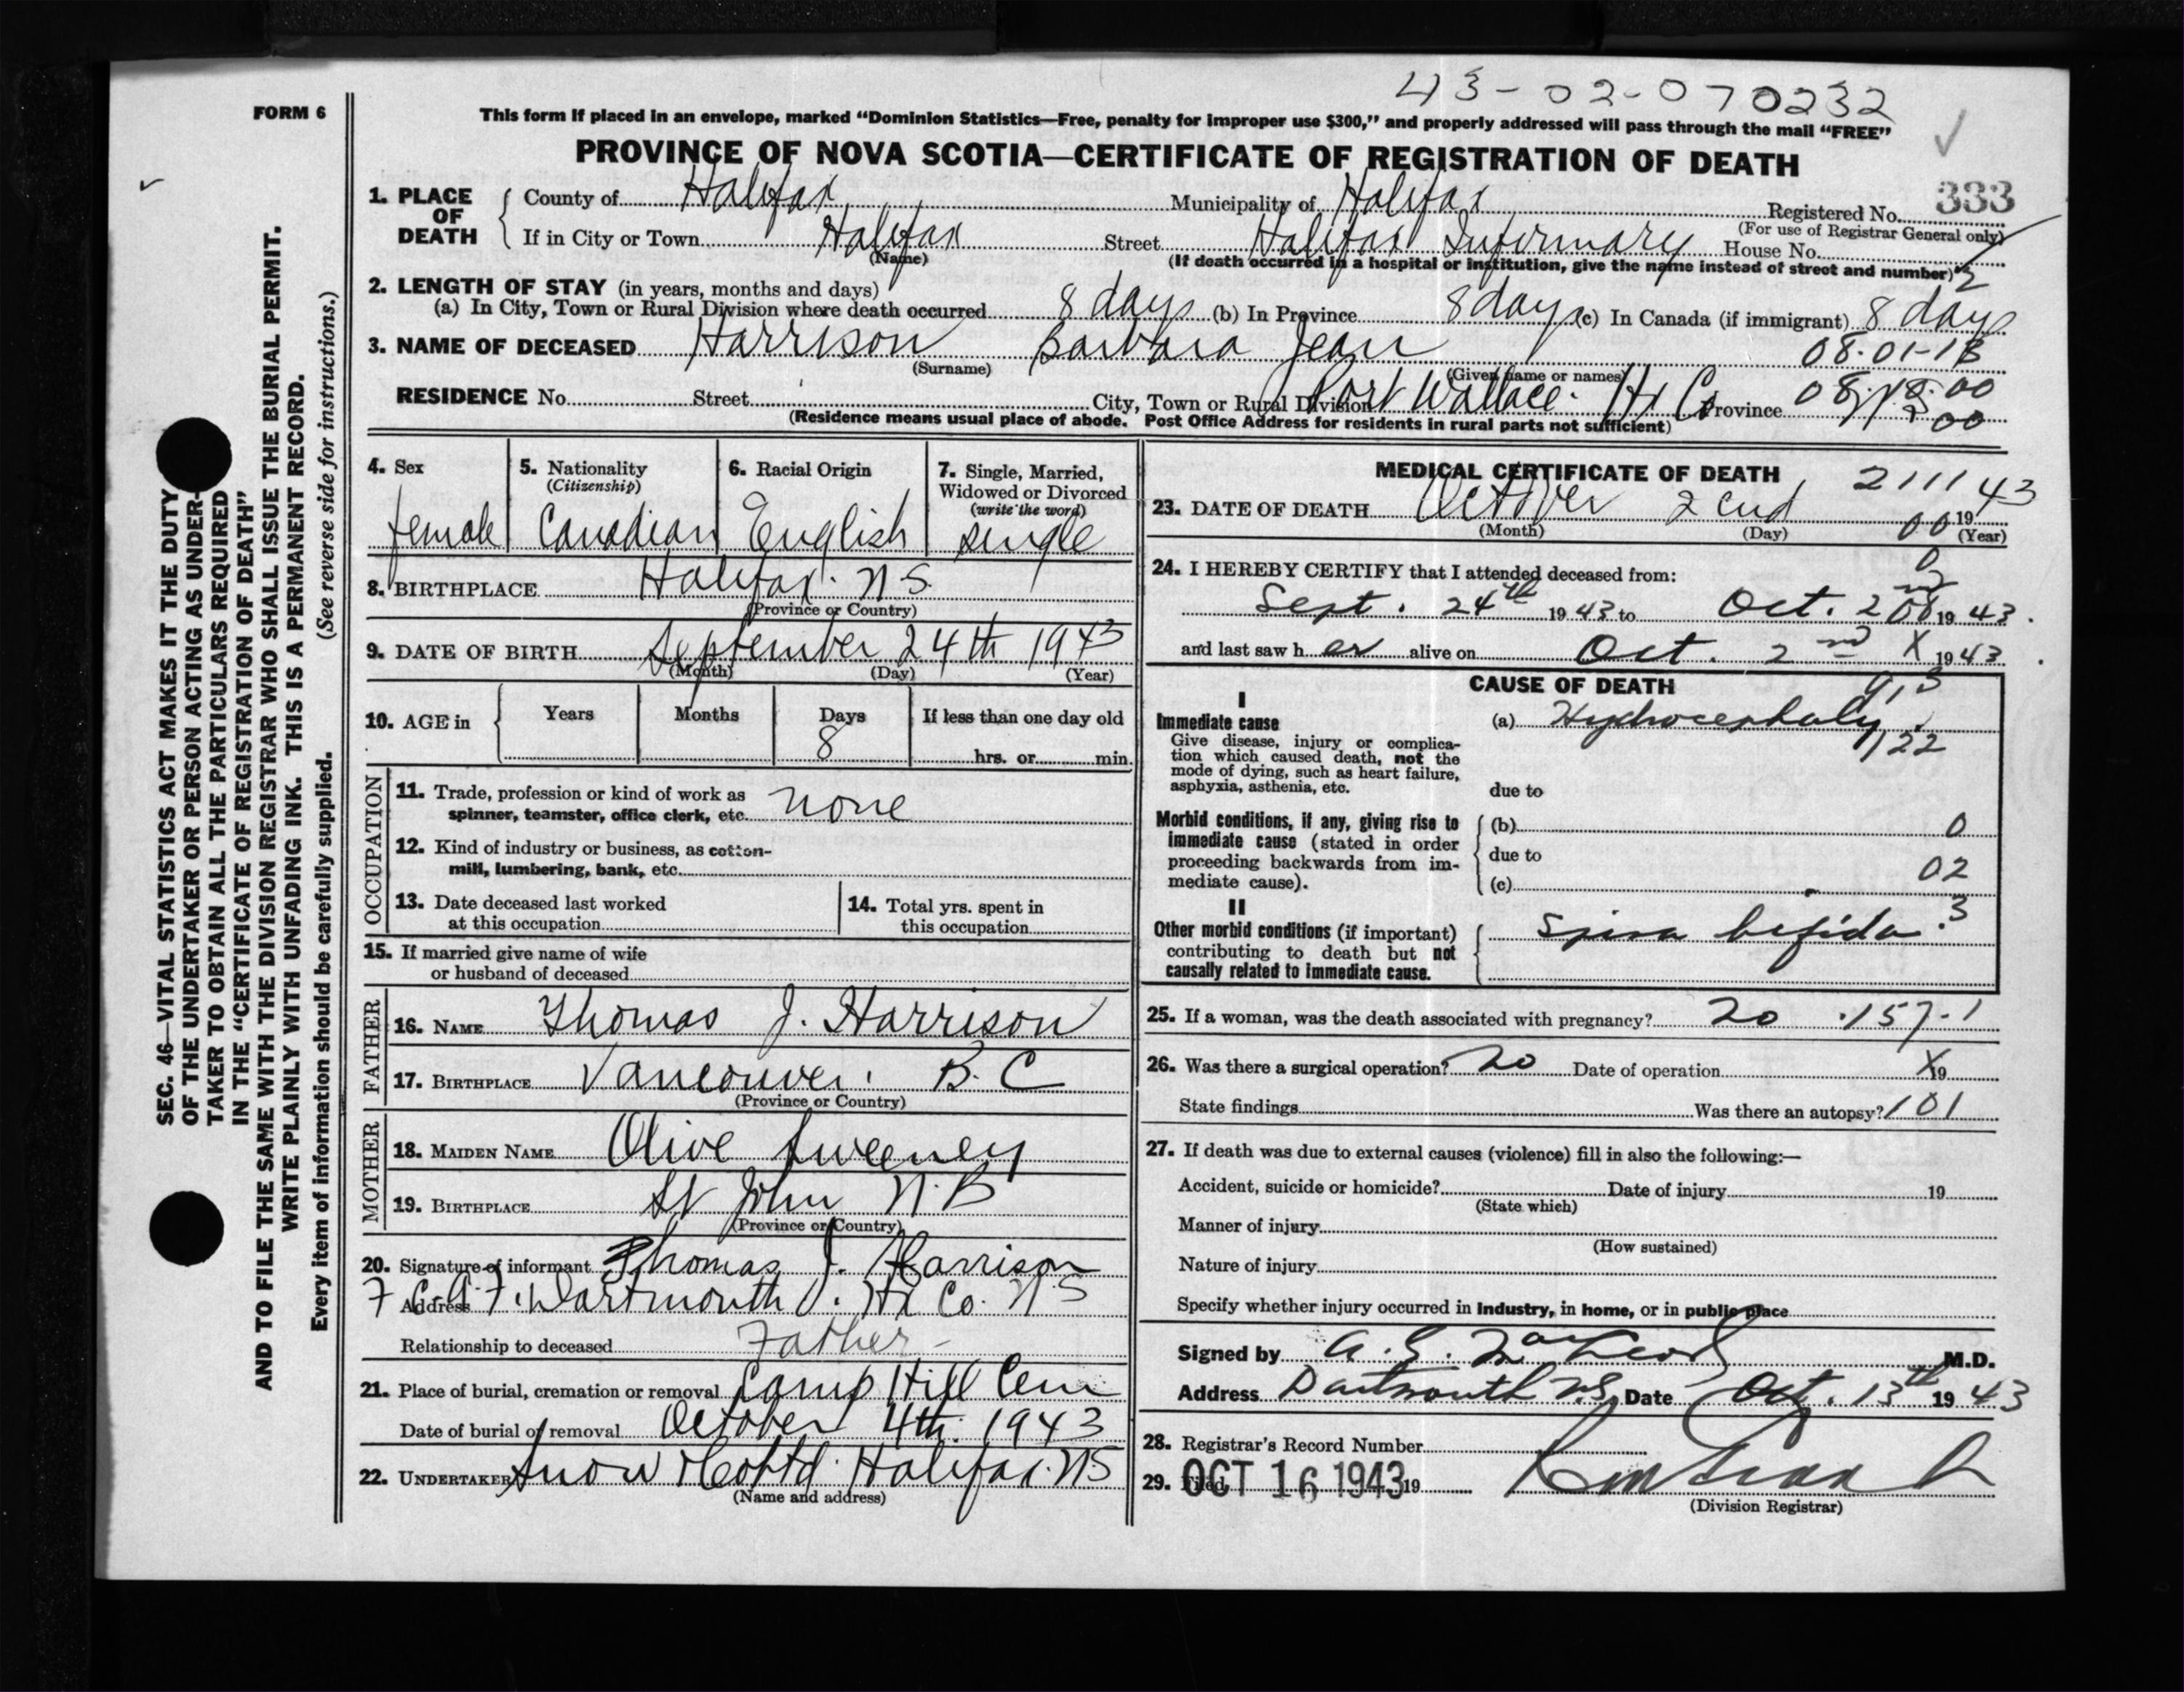 43-02-070232
FORM 6
This form if placed in an envelope, marked "Dominion Statistics—Free, penalty for improper use $300," and properly addressed will pass through the mail "FREE"
PROVINCE OF NOVA SCOTIA—CERTIFICATE OF REGISTRATION OF DEATH
333
1. PLACE OF DEATH County of Halifax Municipality of Halifax Registered No.
(For use of Registrar General only)
If in City or Town Halifax Street Halifax Infirmary House No.
(Name) (If death occurred in a hospital or institution, give the name instead of street and number)
2
2. LENGTH OF STAY (in years, months and days)
(a) In City, Town or Rural Division where death occurred 8 days (b) In Province 8 days (c) In Canada (if immigrant) 8 days
3. NAME OF DECEASED Harrison Barbara Jean 08.01-13
(Surname) (Given name or names)
RESIDENCE No. Street City, Town or Rural Division Port Wallace. Hx Co Province
00
(Residence means usual place of abode. Post Office Address for residents in rural parts not sufficient)
4. Sex 5. Nationality (Citizenship) 6. Racial Origin 7. Single, Married, Widowed or Divorced (write the word)
female Canadian English single
8. BIRTHPLACE Halifax. N S.
(Province or Country)
9. DATE OF BIRTH September 24th 1943
(Month) (Day) (Year)
10. AGE in Years Months Days If less than one day old
8 hrs. or min.
OCCUPATION
11. Trade, profession or kind of work as spinner, teamster, office clerk, etc. none
12. Kind of industry or business, as cotton-mill, lumbering, bank, etc.
13. Date deceased last worked at this occupation
14. Total yrs. spent in this occupation
15. If married give name of wife or husband of deceased
FATHER
16. NAME Thomas J. Harrison
17. BIRTHPLACE Vancouver. B. C
(Province or Country)
MOTHER
18. MAIDEN NAME Olive Sweeney
19. BIRTHPLACE St John N. B
(Province or Country)
20. Signature of informant Thomas J. Harrison
Address Dartmouth. Hx Co. N S
Relationship to deceased Father -
21. Place of burial, cremation or removal Camp Hill Cem
Date of burial or removal October 4th. 1943
22. UNDERTAKER Snow & Co Ltd. Halifax. NS
(Name and address)
MEDICAL CERTIFICATE OF DEATH
2111
23. DATE OF DEATH October 2end 00 19 43
(Month) (Day) (Year)
0
24. I HEREBY CERTIFY that I attended deceased from:
Sept. 24th 1943 to Oct. 2nd 1943.
and last saw h er alive on Oct. 2nd X 1943.
CAUSE OF DEATH
I
Immediate cause
Give disease, injury or complication which caused death, not the mode of dying, such as heart failure, asphyxia, asthenia, etc.
(a) Hydrocephaly.
122
due to
Morbid conditions, if any, giving rise to immediate cause (stated in order proceeding backwards from immediate cause).
(b) 0
due to
02
(c)
II
Other morbid conditions (if important) contributing to death but not causally related to immediate cause.
Spina bifida. 3
25. If a woman, was the death associated with pregnancy? no .157.1
26. Was there a surgical operation? no Date of operation X 19
State findings Was there an autopsy? 101
27. If death was due to external causes (violence) fill in also the following:—
Accident, suicide or homicide? Date of injury 19
(State which)
Manner of injury
(How sustained)
Nature of injury
Specify whether injury occurred in industry, in home, or in public place
Signed by A. G. MacLeod M.D.
Address Dartmouth N.S. Date Oct. 13th 1943
28. Registrar's Record Number
29. Filed, OCT 16 1943 19
(Division Registrar)
SEC. 46—VITAL STATISTICS ACT MAKES IT THE DUTY
OF THE UNDERTAKER OR PERSON ACTING AS UNDER-
TAKER TO OBTAIN ALL THE PARTICULARS REQUIRED
IN THE "CERTIFICATE OF REGISTRATION OF DEATH"
AND TO FILE THE SAME WITH THE DIVISION REGISTRAR WHO SHALL ISSUE THE BURIAL PERMIT.
WRITE PLAINLY WITH UNFADING INK. THIS IS A PERMANENT RECORD.
Every item of information should be carefully supplied. (See reverse side for instructions.)